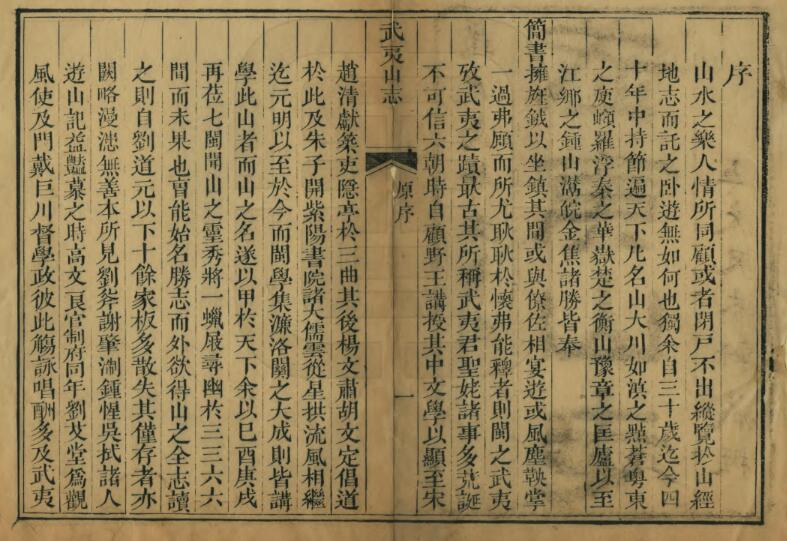 序
山水之樂人情所同顧或者閉戶不出縱覽於山經
地志而託之卧遊無如何也獨余自三十歲迄今四
十年中持節遍天下凡名山大川如滇之點蒼粵東
之庾嶺羅浮秦之華嶽楚之衡山豫章之匡廬以至
江鄉之鍾山灊皖金焦諸勝皆奉
簡書擁旌鉞以坐鎮其間或與僚佐相宴遊或風塵鞅掌
一過弗顧而所尤耿耿於懷弗能釋者則閩之武夷
攷武夷之蹟最古其所稱武夷君聖姥諸事多荒誕
不可信六朝時自顧野王講授其中文學以顯至宋
武夷山志
原序
一
趙清獻築吏隱亭於三曲其後楊文肅胡文定倡道
於此及朱子開紫陽書院諸大儒雲從星拱流風相繼
迄元明以至於今而閩學集濂洛關之大成則皆講
學此山者而山之名遂以甲於天下余以己酉庚戌
再莅七閩閩山之靈秀將一蠟屐尋幽於三三六六
間而未果也曹能始名勝志而外欲得山之全志讀
之則自劉道元以下十餘家板多散失其僅存者亦
闕略漫漶無善本所見劉斧謝肇淛鍾惺吳拭諸人
遊山記益豔慕之時高文良官制府同年劉艾堂爲觀
風使及門戴巨川督學政彼此觴詠唱酬多及武夷